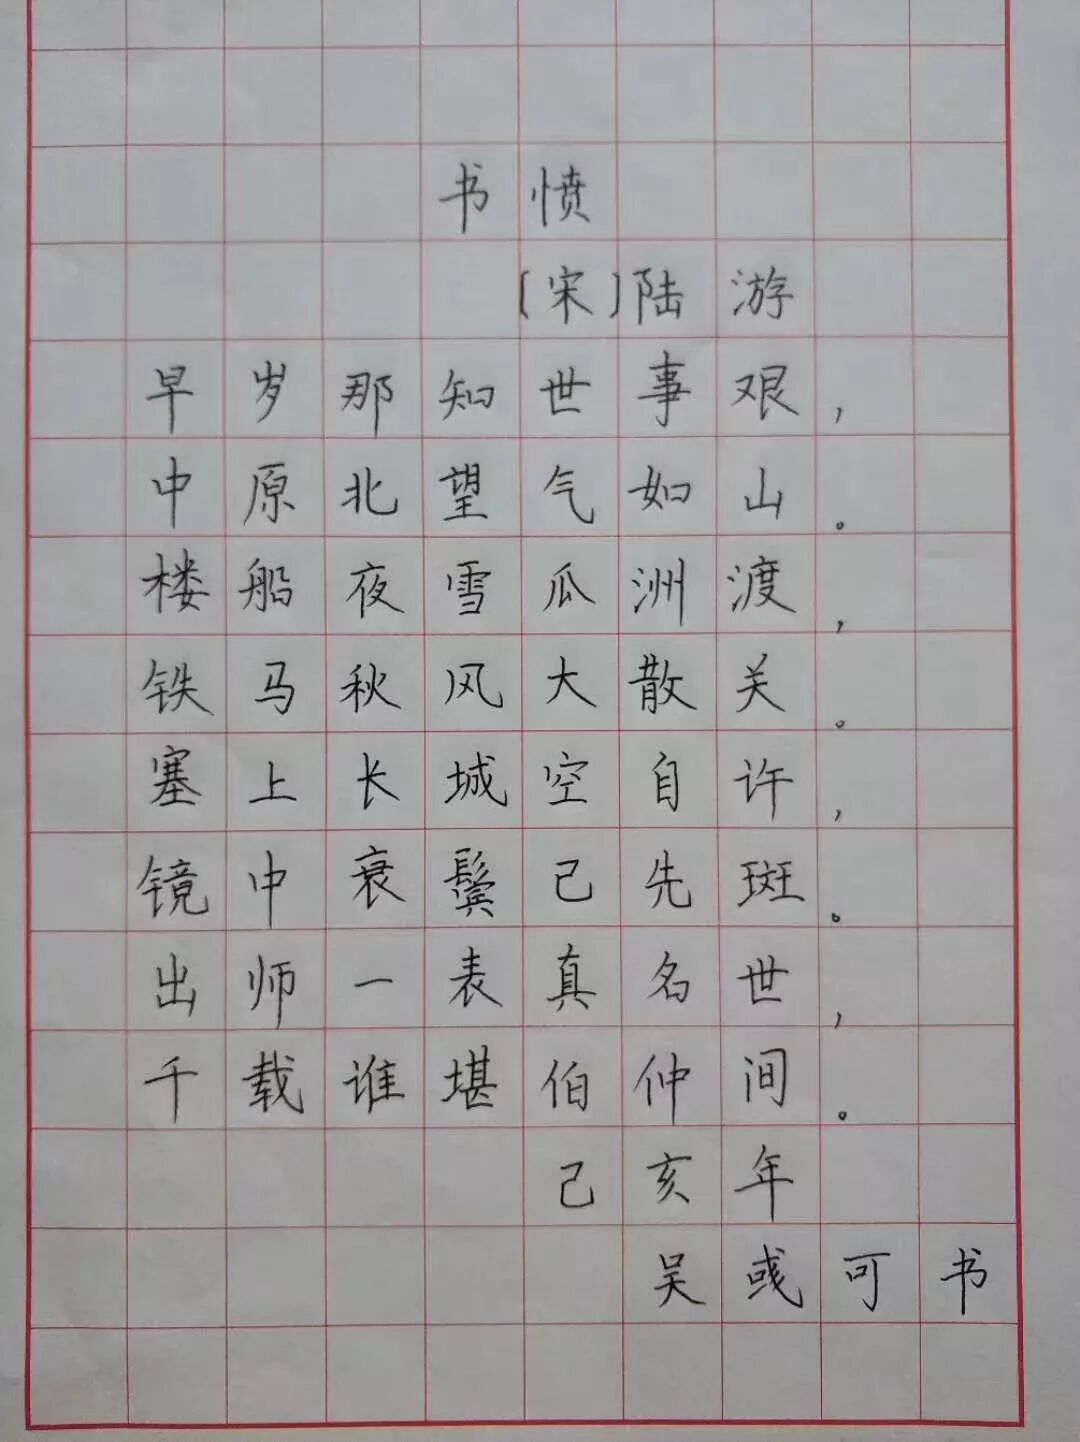 书愤
［宋］陆游
早岁那知世事艰，
中原北望气如山。
楼船夜雪瓜洲渡，
铁马秋风大散关。
塞上长城空自许，
镜中衰鬓已先斑。
出师一表真名世，
千载谁堪伯仲间。
己亥年
吴彧可书